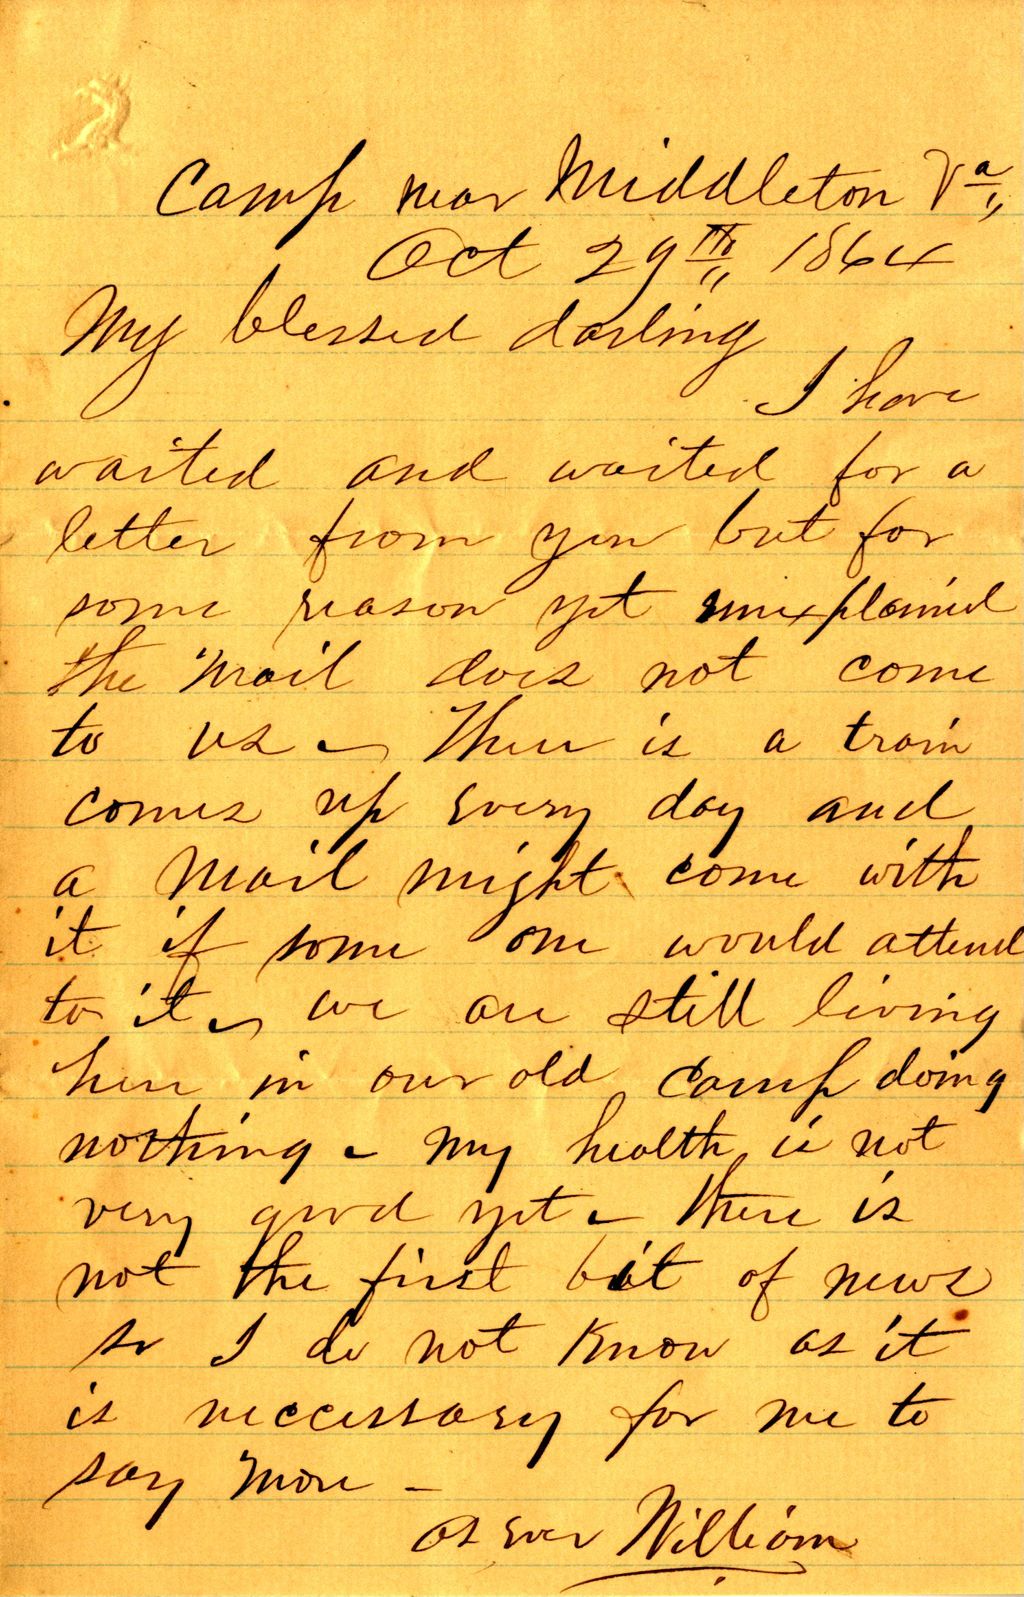 Camp near Middleton Va
Oct 29th 1864
My blessed darling
I have
waited and waited for a
letter from you but for
some reason yet unexplained
the mail does not come
to us – There is a train
comes up every day and
a Mail might come with
it if some one would attend
to it – we are still living
here in our old camp doing
nothing – my health is not
very good yet – there is
not the first bit of news
so I do not know as it
is neccessary for me to
say more –
as ever William